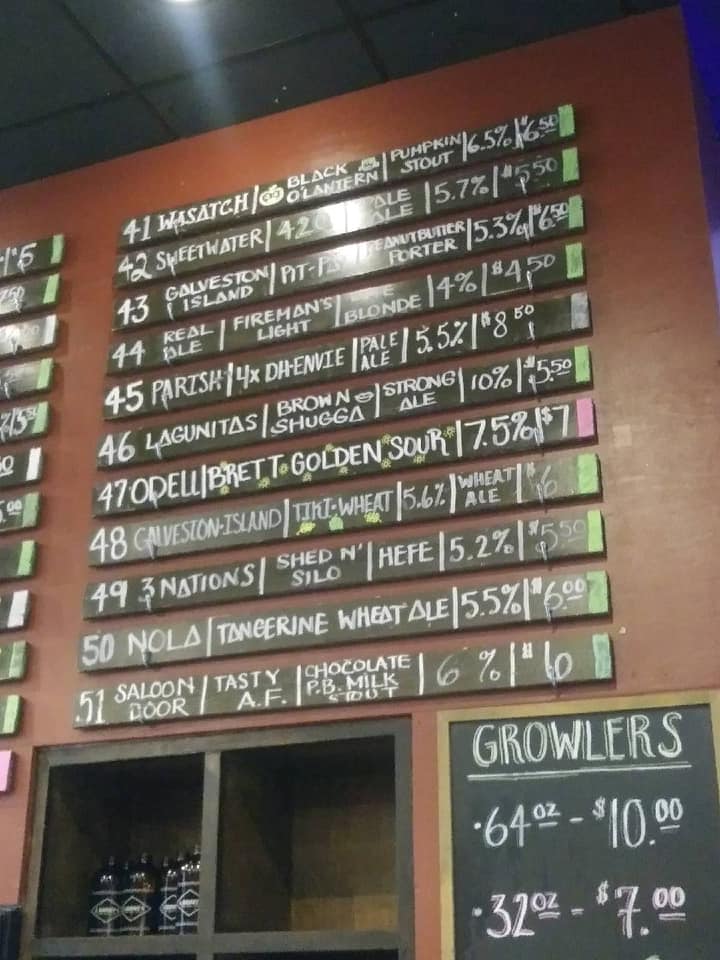 41 WASATCH | BLACK O'LANTERN | PUMPKIN STOUT | 6.5% | $6.50
42 SWEETWATER | 420 PALE ALE | 5.7% | $5.50
43 GALVESTON ISLAND | PEANUTBUTTER PORTER | 5.3% | $6.50
44 REAL ALE | FIREMAN'S LIGHT | BLONDE | 4% | $4.50
45 PARISH | 4x DH-ENVIE | PALE ALE | 5.5% | $8.50
46 LAGUNITAS | BROWN SHUGGA | STRONG ALE | 10% | $5.50
47 ODELL | BRETT GOLDEN SOUR | 7.5% | $7
48 GALVESTON-ISLAND | TIKI-WHEAT | 5.6% | WHEAT ALE | $6
49 3 NATIONS | SHED N' SILO | HEFE | 5.2% | $5.50
50 NOLA | TANGERINE WHEAT ALE | 5.5% | $6.00
51 SALOON DOOR | TASTY A.F. | CHOCOLATE P.B. MILK STOUT | 6% | $6
GROWLERS
·64oz - $10.00
·32oz - $7.00